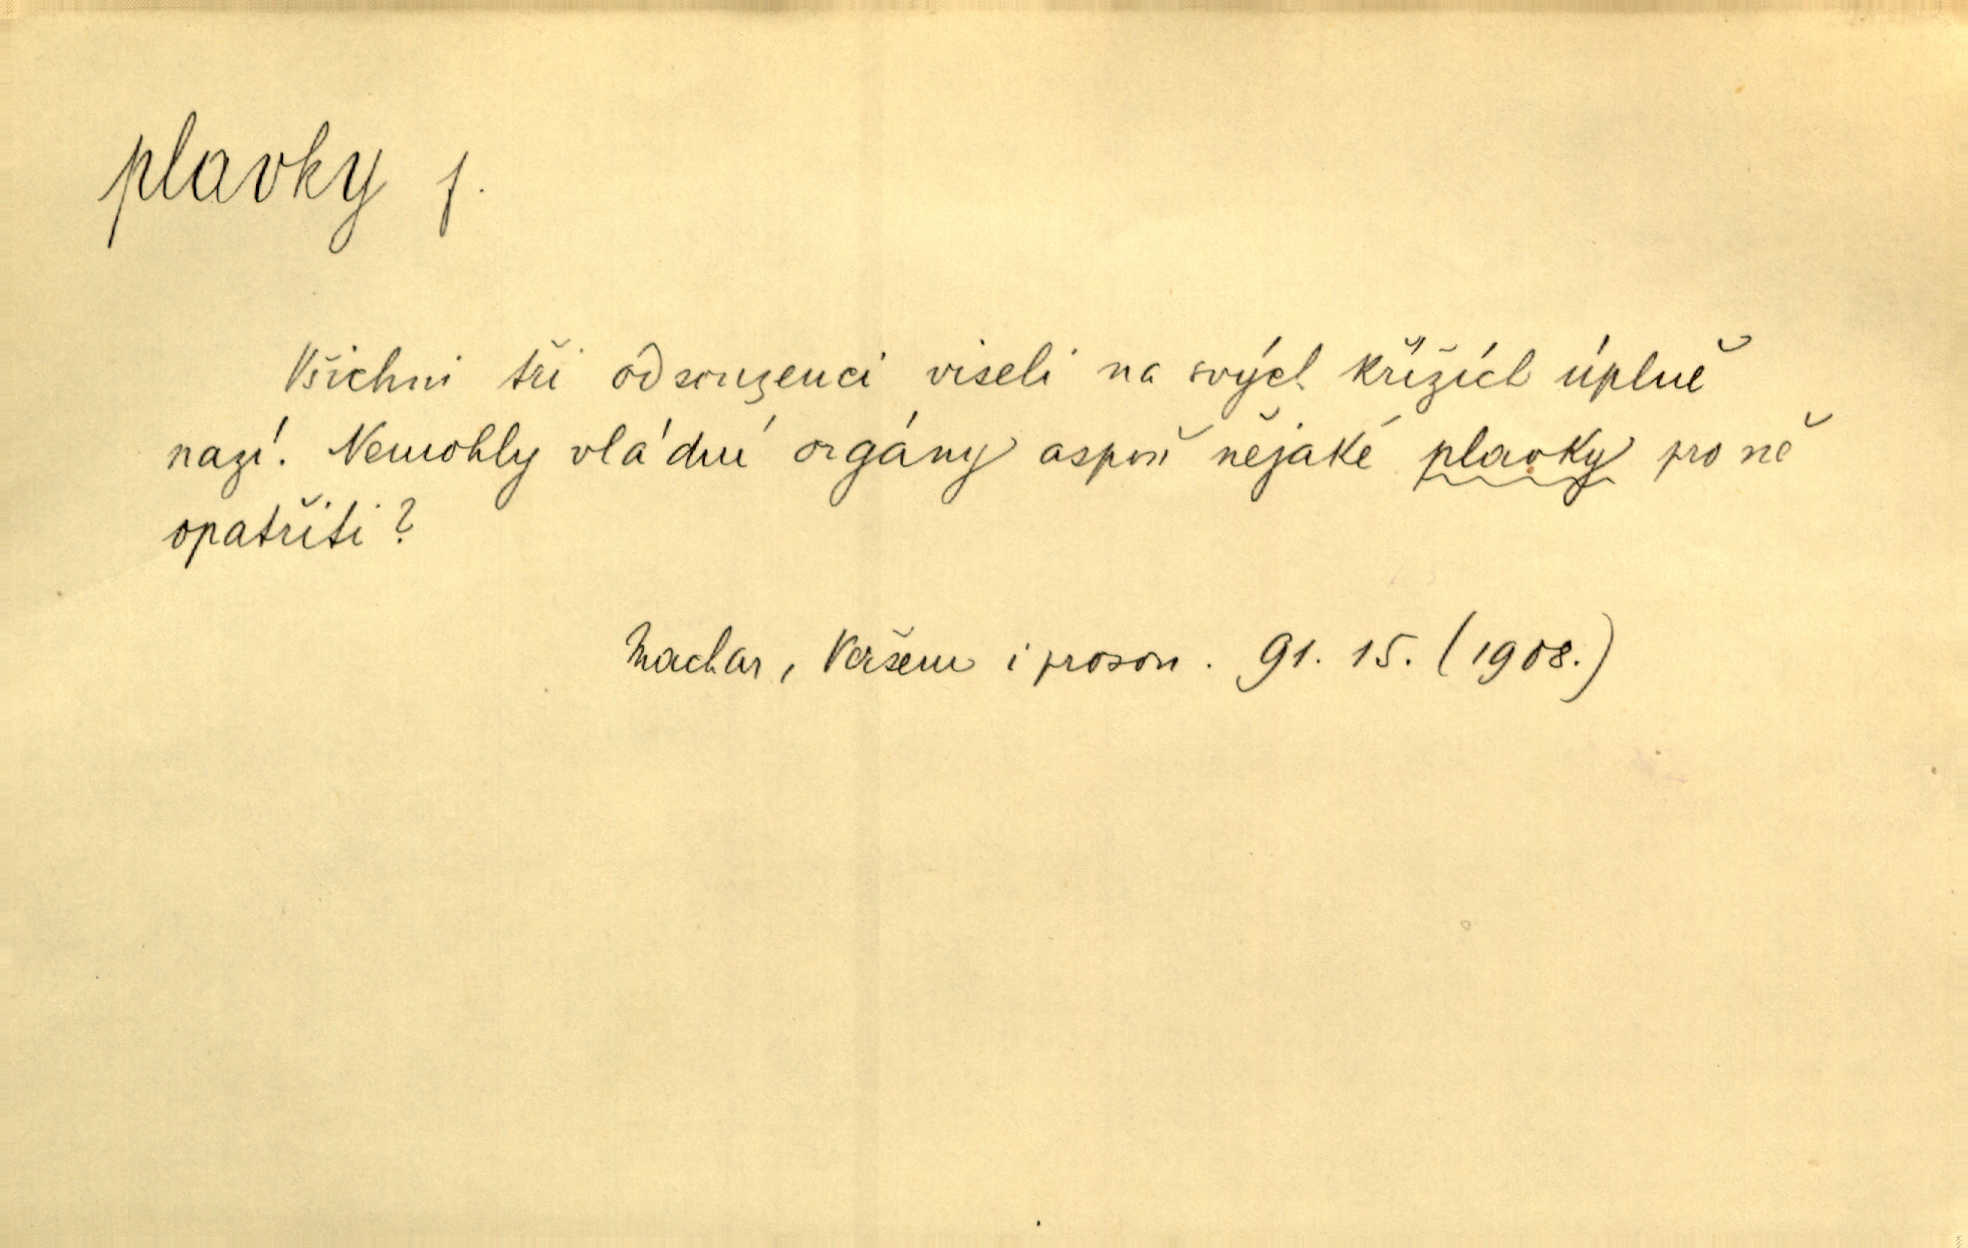 plavky f.
Všichni tři odsouzenci viseli na svých křížích úplně
nazí. Nemohly vládní orgány aspoň nějaké plavky pro ně
opatřiti?
Machar, Veršem i prosou. 91. 15. (1908.)